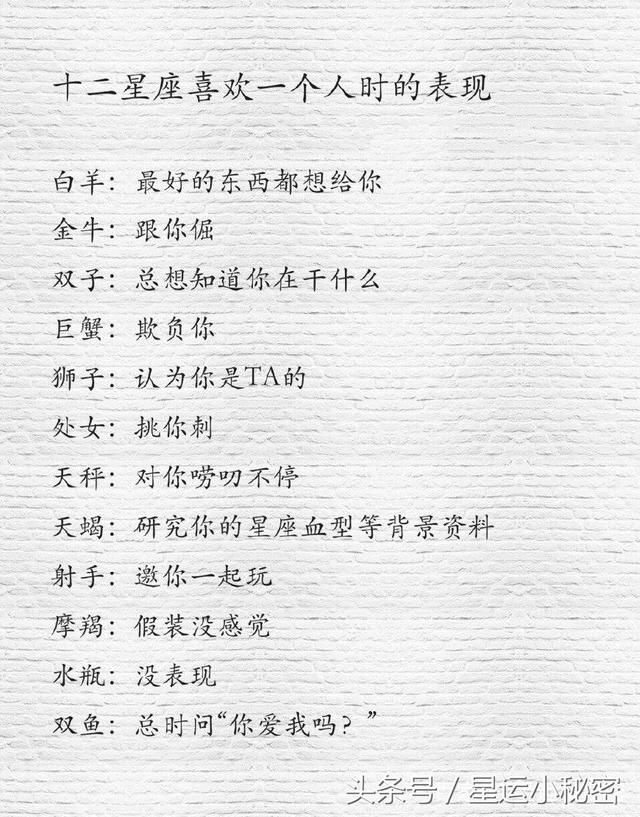 十二星座喜欢一个人时的表现
白羊：最好的东西都想给你
金牛：跟你倔
双子：总想知道你在干什么
巨蟹：欺负你
狮子：认为你是TA的
处女：挑你刺
天秤：对你唠叨不停
天蝎：研究你的星座血型等背景资料
射手：邀你一起玩
摩羯：假装没感觉
水瓶：没表现
双鱼：总时问“你爱我吗？”
头条号／星运小秘密